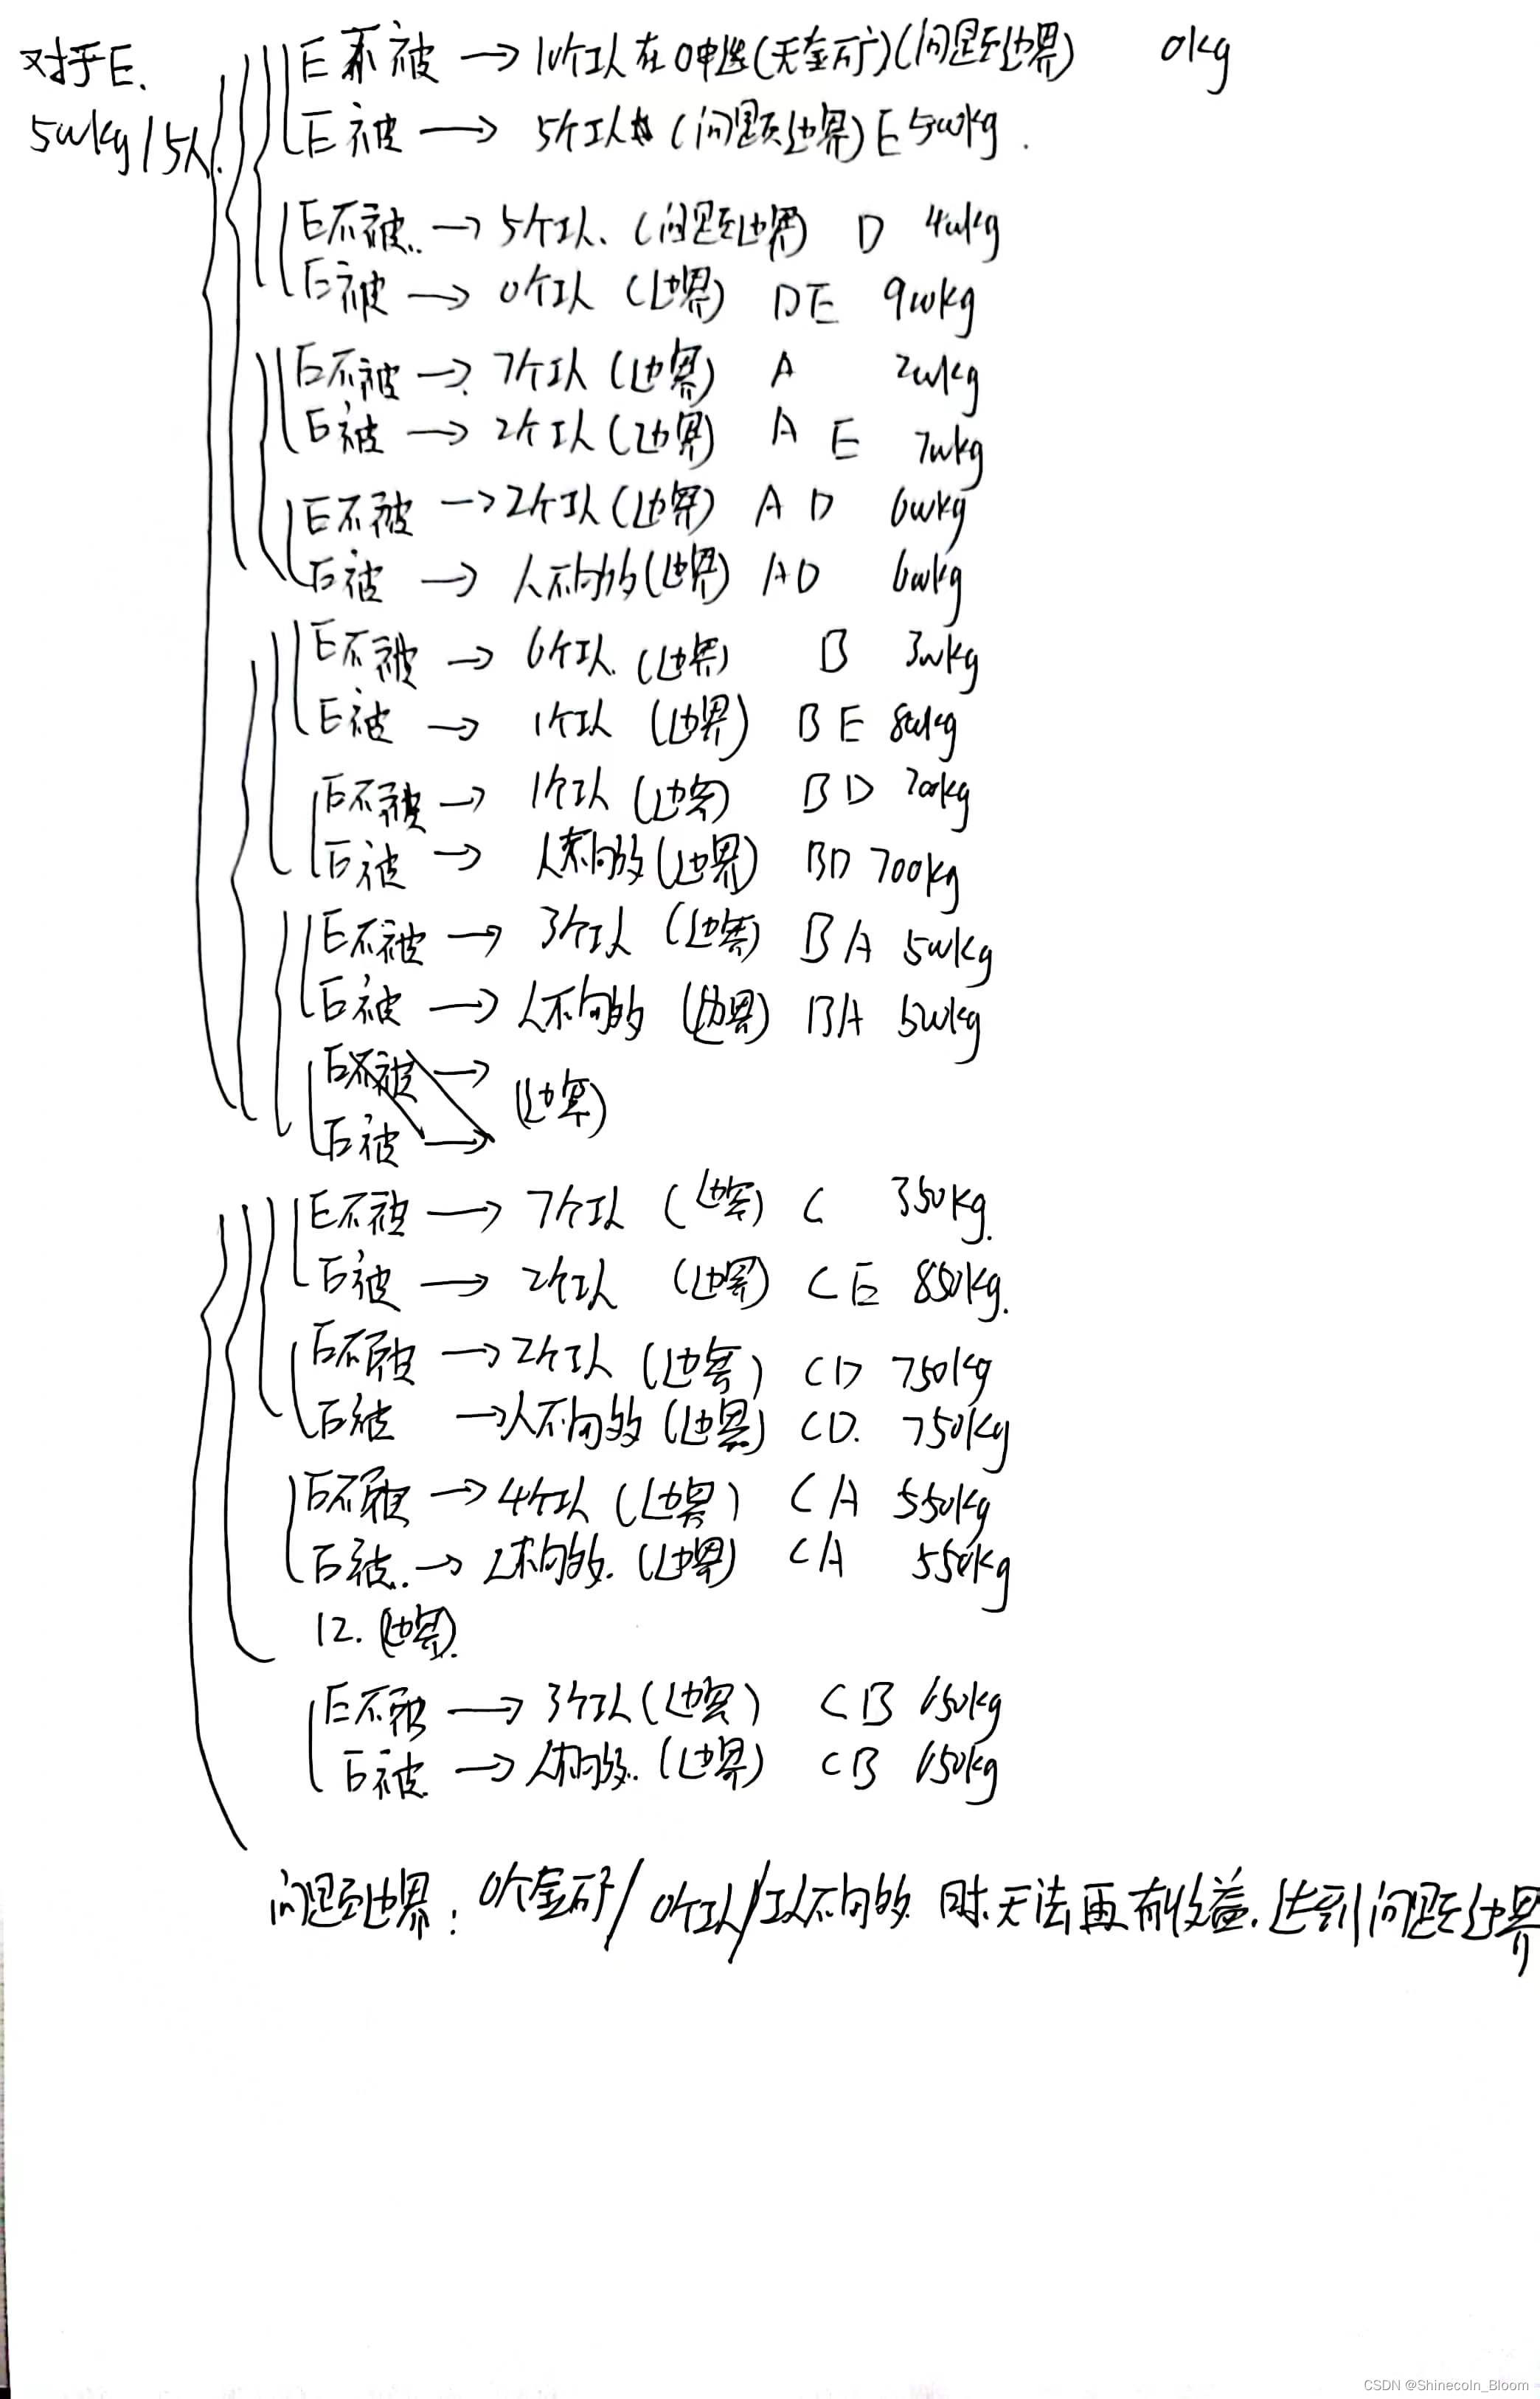 对于E.
500kg/5人.
E不被 → 10个工人在0中选(无金矿)(问题边界) 0kg
E被 → 5个工人 (问题边界) E 500kg.
E不被. → 5个工人. (问题边界) D 400kg
E被 → 0个工人 (边界) DE 900kg
E不被 → 7个工人 (边界) A 200kg
E被 → 2个工人 (边界) A E 700kg
E不被 → 2个工人 (边界) A D 600kg
E被 → 人不够的 (边界) AD 600kg
E不被 → 6个工人. (边界) B 300kg
E被 → 1个工人 (边界) B E 800kg
E不被 → 1个工人 (边界) B D 700kg
E被 → 人不够的 (边界) BD 700kg
E不被 → 3个工人 (边界) B A 500kg
E被 → 人不够的 (边界) BA 500kg
E不被 →
(边界)
E被 →
E不被 → 7个工人 (边界) C 350kg.
E被 → 2个工人 (边界) C E 850kg.
E不被 → 2个工人 (边界) CD 750kg
E被 → 人不够的 (边界) CD. 750kg
E不被 → 4个工人 (边界) C A 550kg
E被. → 人不够的. (边界) CA 550kg
12. (边界).
E不被 → 3个工人 (边界) C B 650kg
E被. → 人不够的. (边界) C B 650kg
问题边界: 0个金矿/ 0个工人/工人不够的 时.无法再有收益.达到问题边界
CSDN @Shinecoln_Bloom